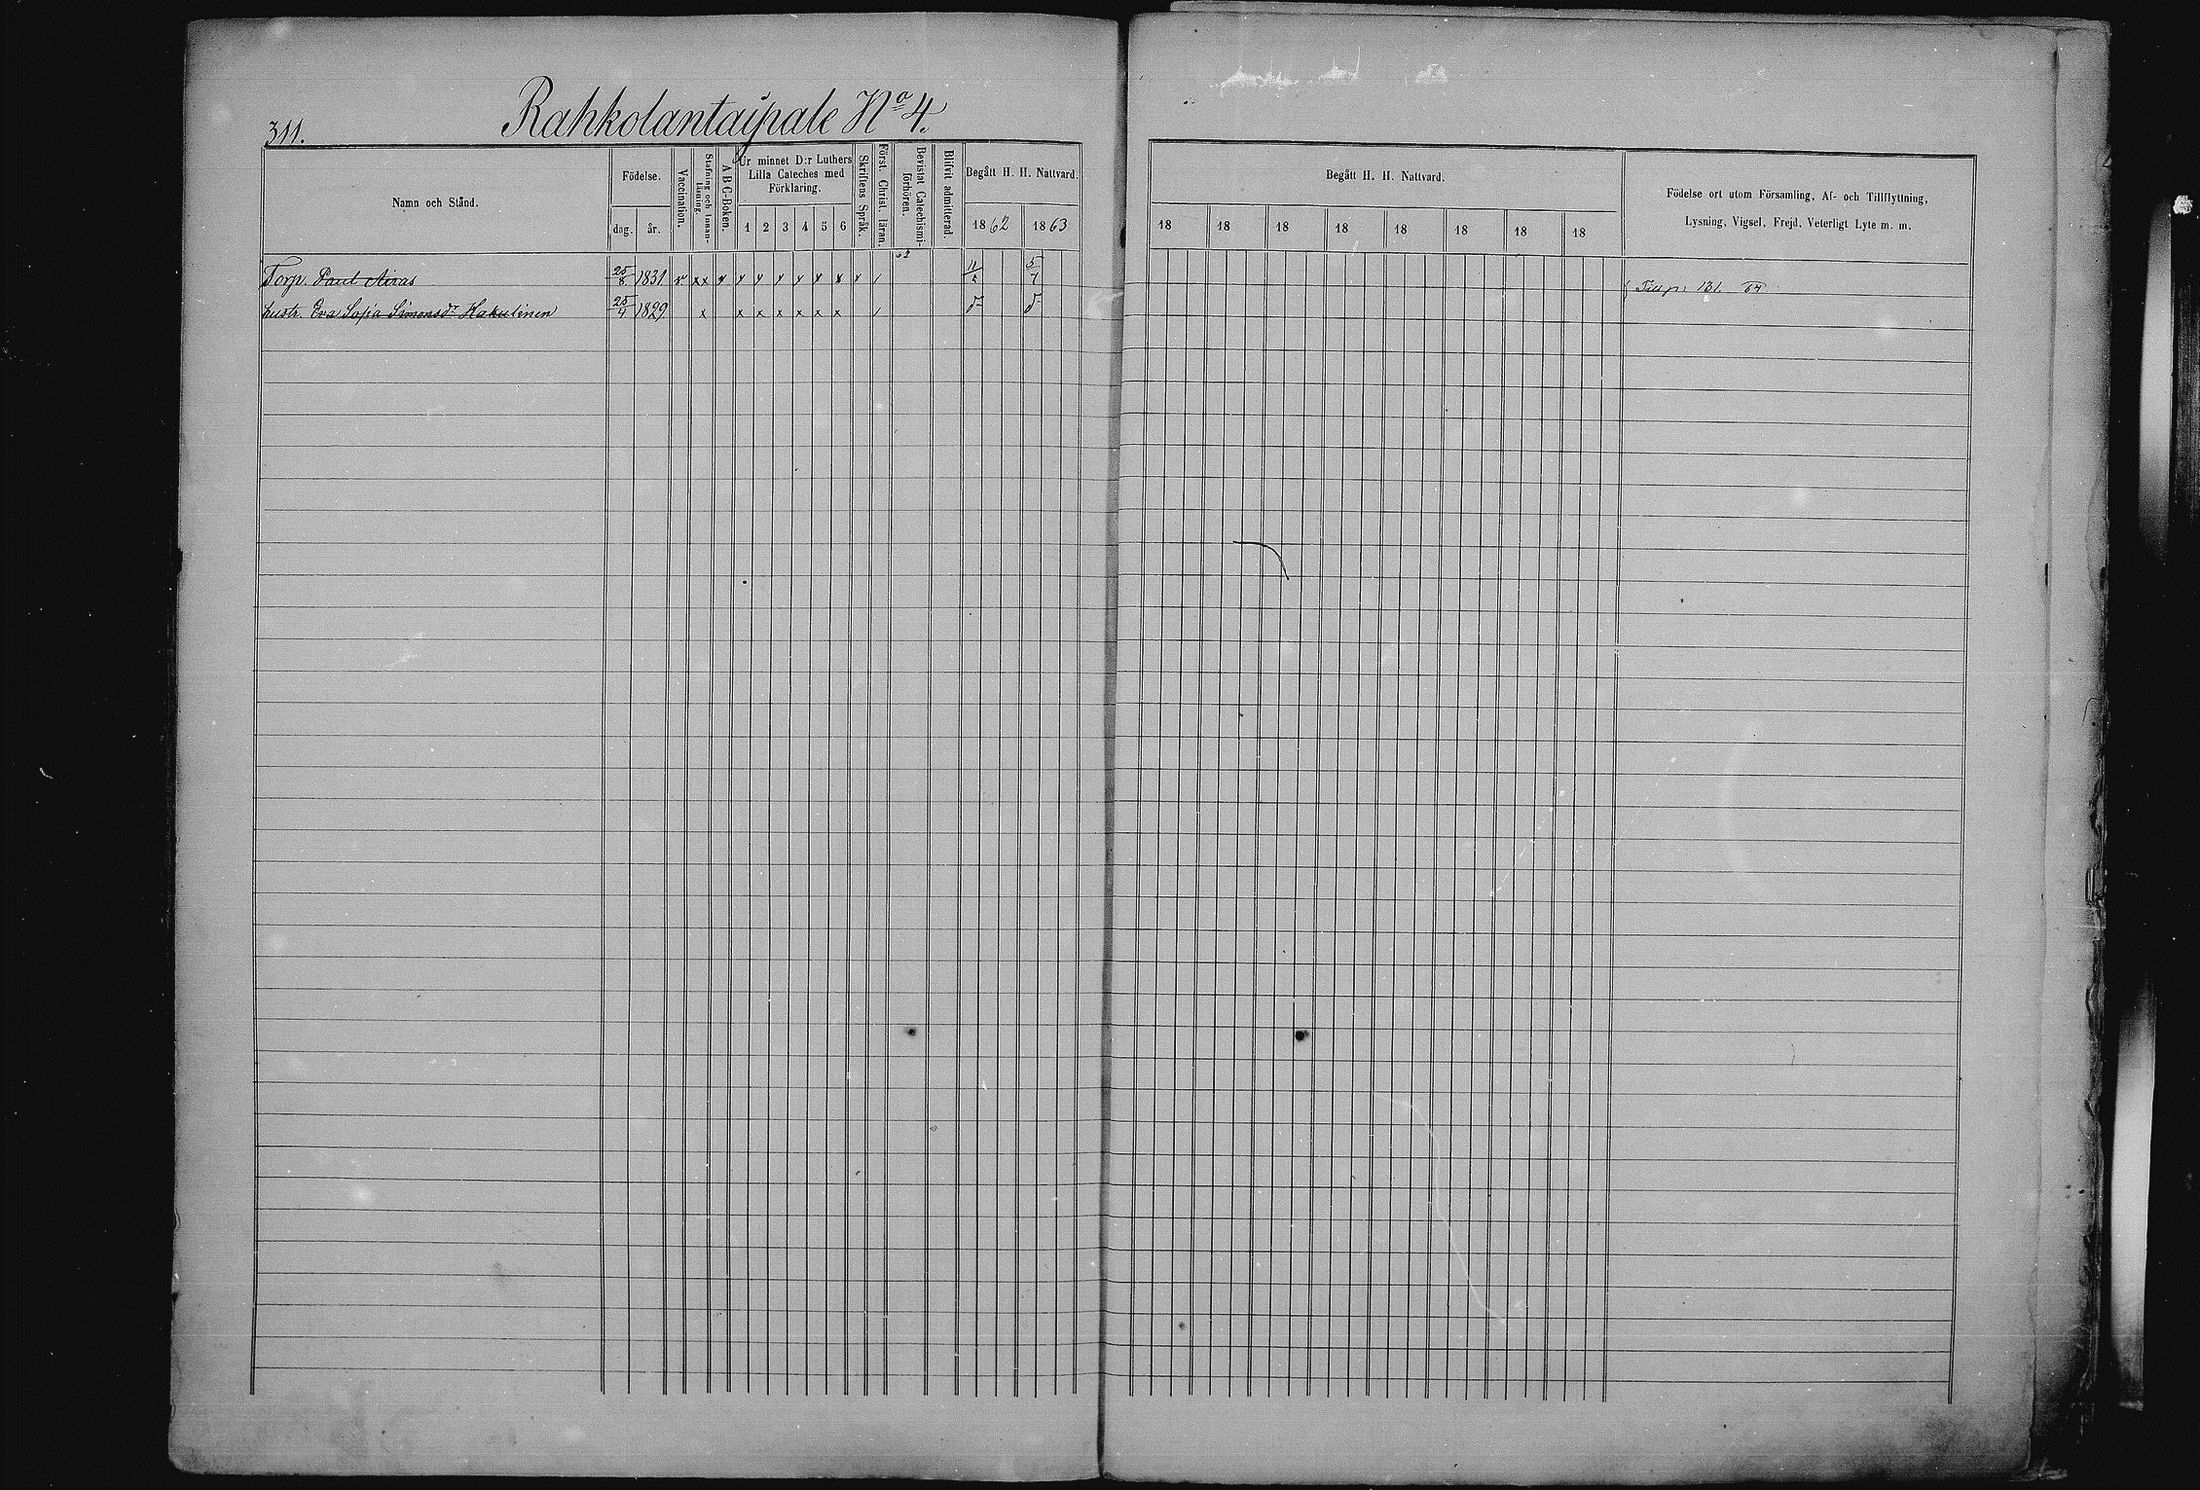 311. Rahkolantaipale No 4.
Namn och Stånd.
Födelse.
dag. år.
Vaccination.
Stafning och Innan-läsning.
A B C-Boken.
Ur minnet D:r Luthers
Lilla Cateches med
Förklaring.
1 2 3 4 5 6
Skriftens Språk.
Först. Christ. läran.
Bevistat Catechismi-förhören.
Blifvit admitterad.
Begått H. H. Nattvard.
1862 1863
Begått H. H. Nattvard.
18 18 18 18 18 18 18 18
Födelse ort utom Församling, Af- och Tillflyttning,
Lysning, Vigsel, Frejd, Veterligt Lyte m. m.
Torp. Paul Airas 25/8 1831 v x x 11 5/7
hustr. Eva Sofia Simonsdr Hakulinen 25/4 1829 x x x x x x x